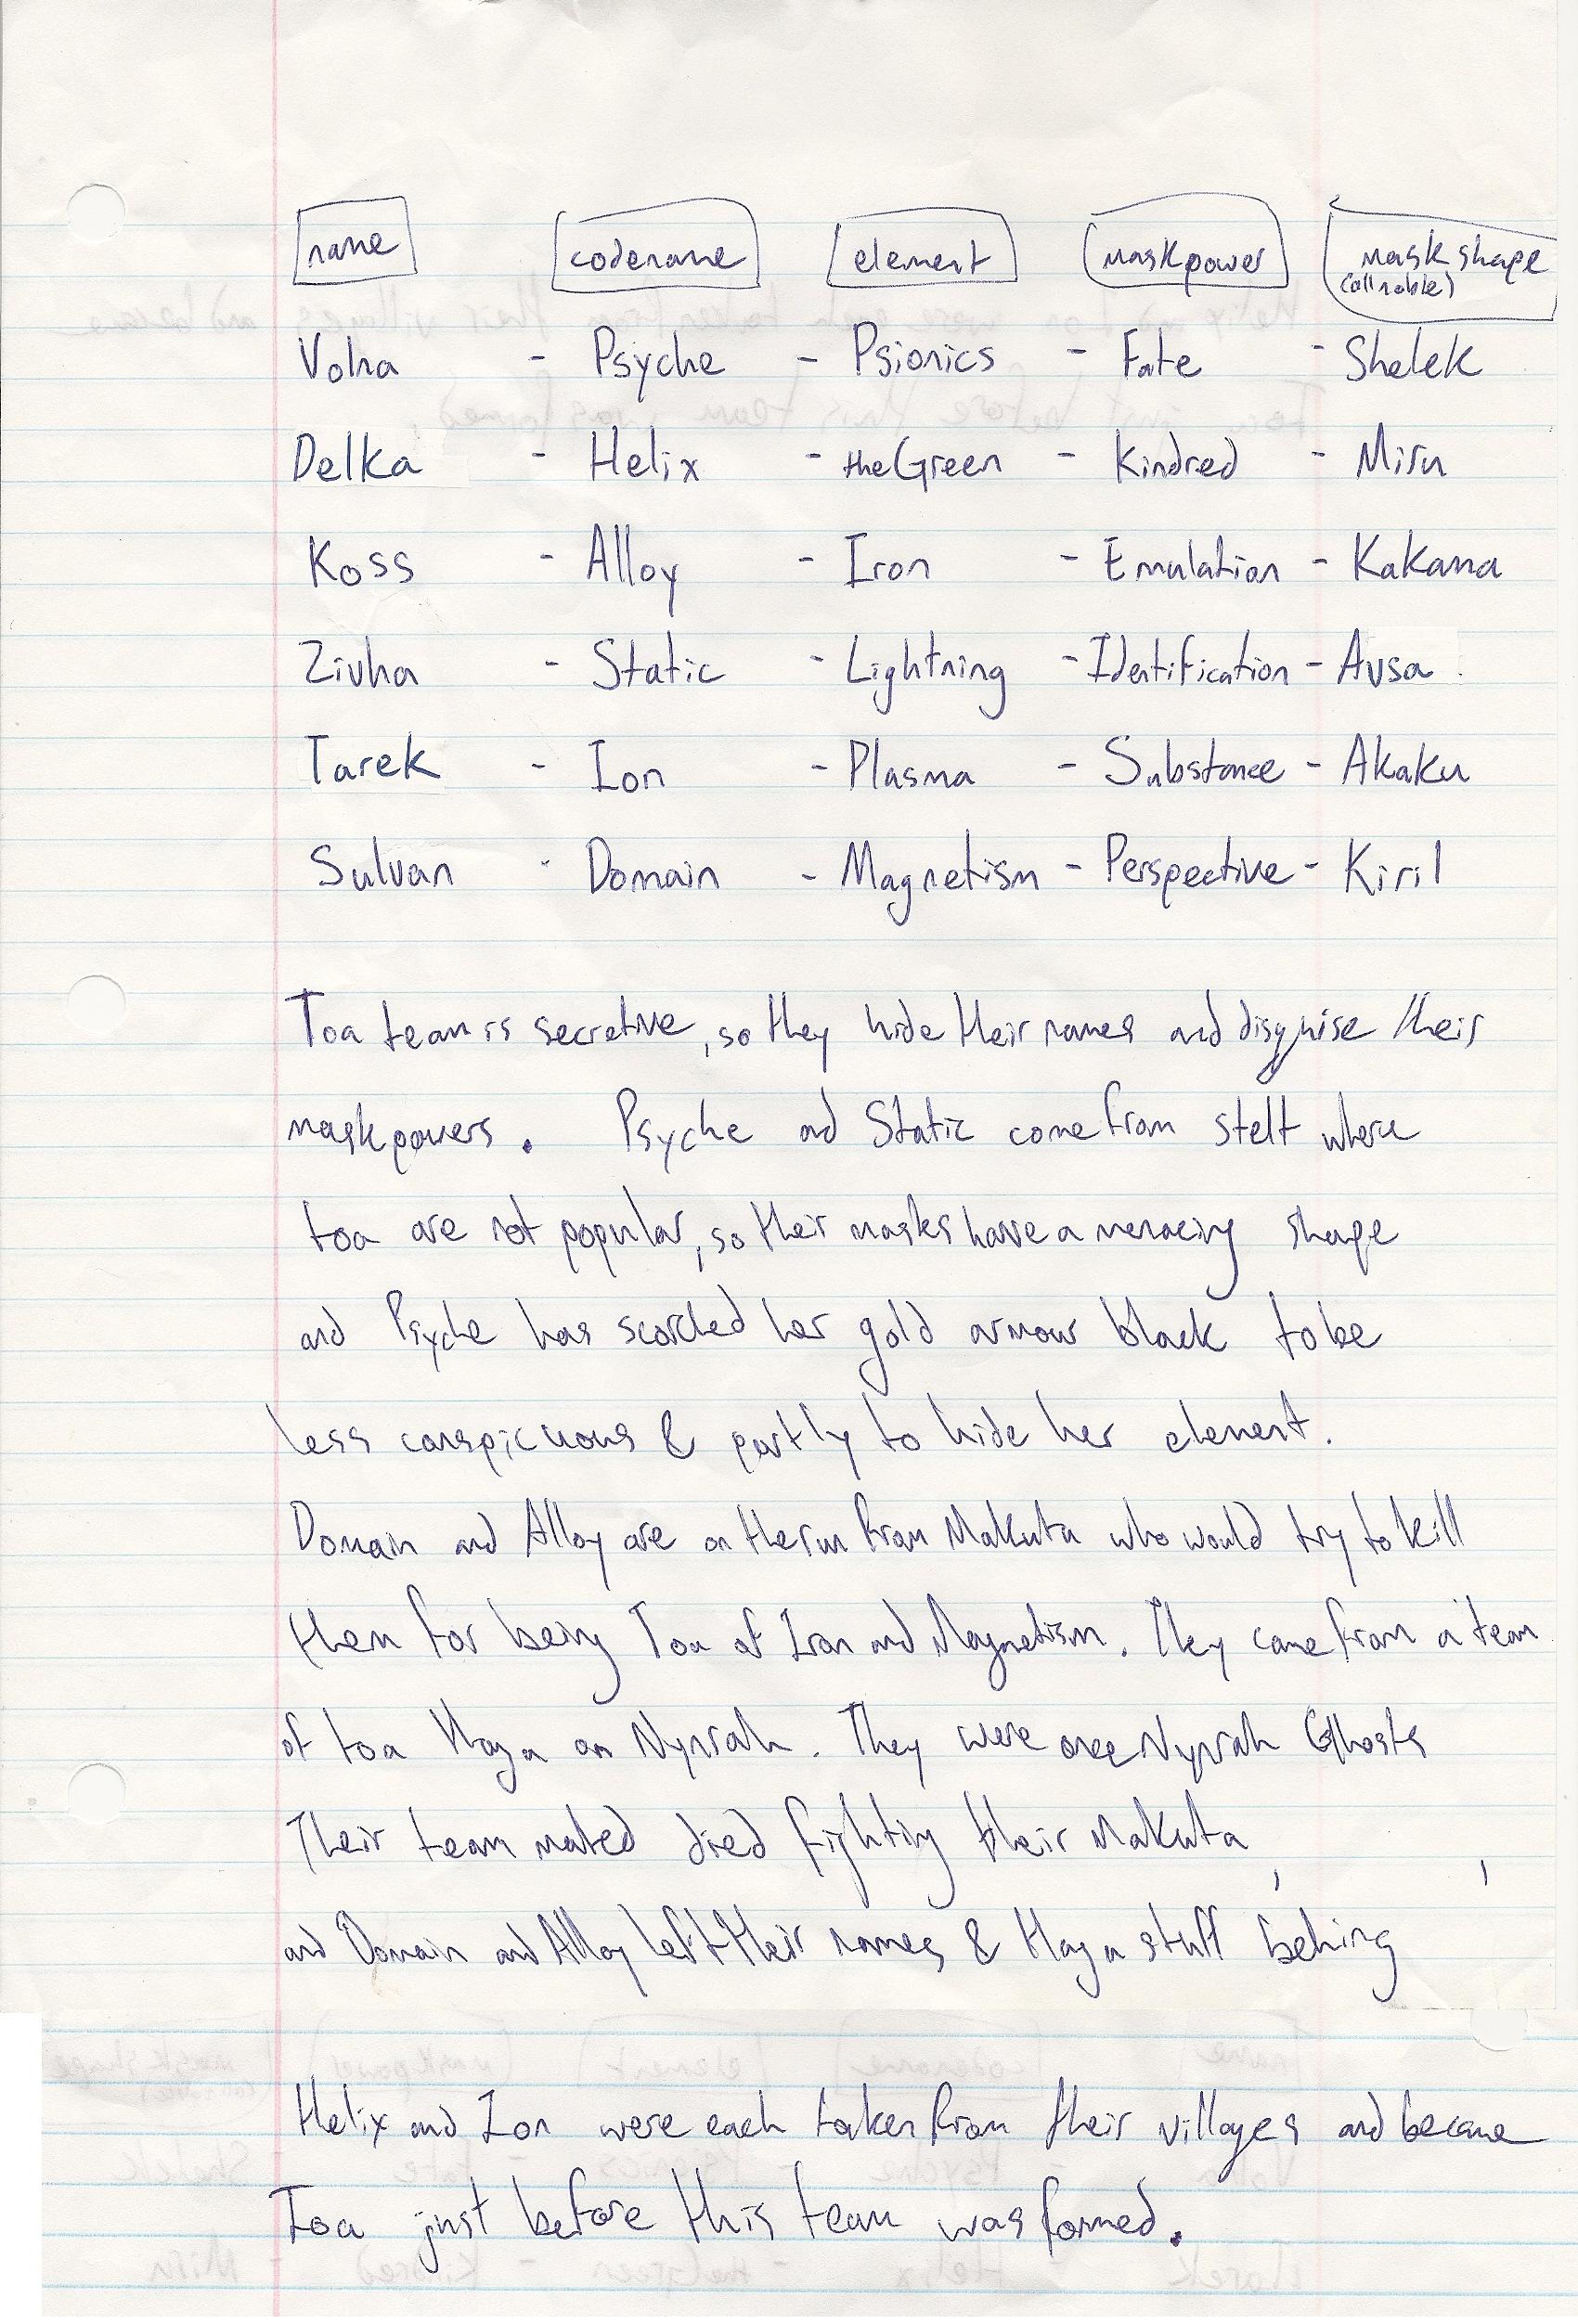 name codename element maskpower mask shape
(all noble)
Volha - Psyche - Psionics - Fate - Shelek
Delka - Helix - the Green - Kindred - Miru
Koss - Alloy - Iron - Emulation - Kakama
Zivha - Static - Lightning - Identification - Avsa
Tarek - Ion - Plasma - Substance - Akaku
Sulvan - Domain - Magnetism - Perspective - Kiril
Toa team is secretive, so they hide their names and disguise their
maskpowers. Psyche and Static come from stelt where
toa are not popular, so their masks have a menacing shape
and Psyche has scorched her gold armour black to be
less conspicuous & partly to hide her element.
Domain and Alloy are on the run from Makuta who would try to kill
them for being Toa of Iron and Magnetism. They came from a team
of toa Haga on Nynrah. They were once Nynrah Ghosts
Their team mated died fighting their Makuta,
and Domain and Alloy left their names & Haga stuff behing
Helix and Ion were each taken from their villages and became
Toa just before this team was formed.